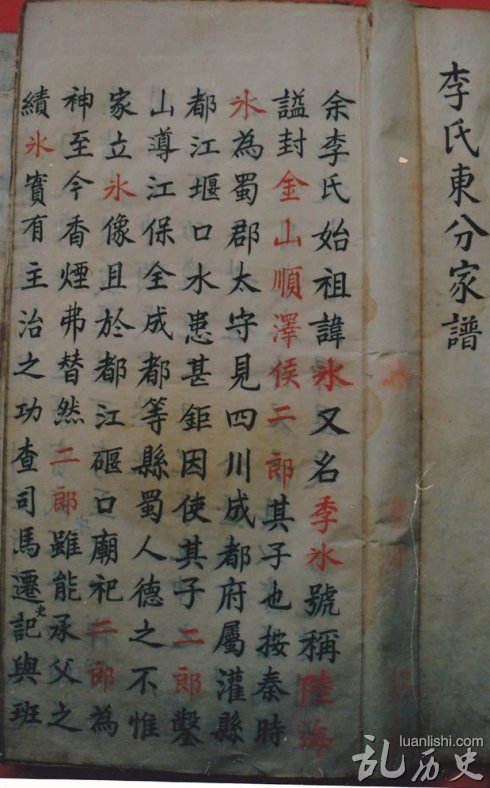 李氏東分家譜
余李氏始祖諱冰又名季冰號稱陸海
謚封金山順澤侯二郎其子也按秦時
氷為蜀郡太守見四川成都府屬灌縣
都江堰口水患甚鉅因使其子二郎鑿
山導江保全成都等縣蜀人德之不惟
家立氷像且於都江碅口廟祀二郎為
神至今香煙弗替然二郎雖能承父之
績氷實有主治之功查司馬遷史記與班
luanlishi.com
乱历史